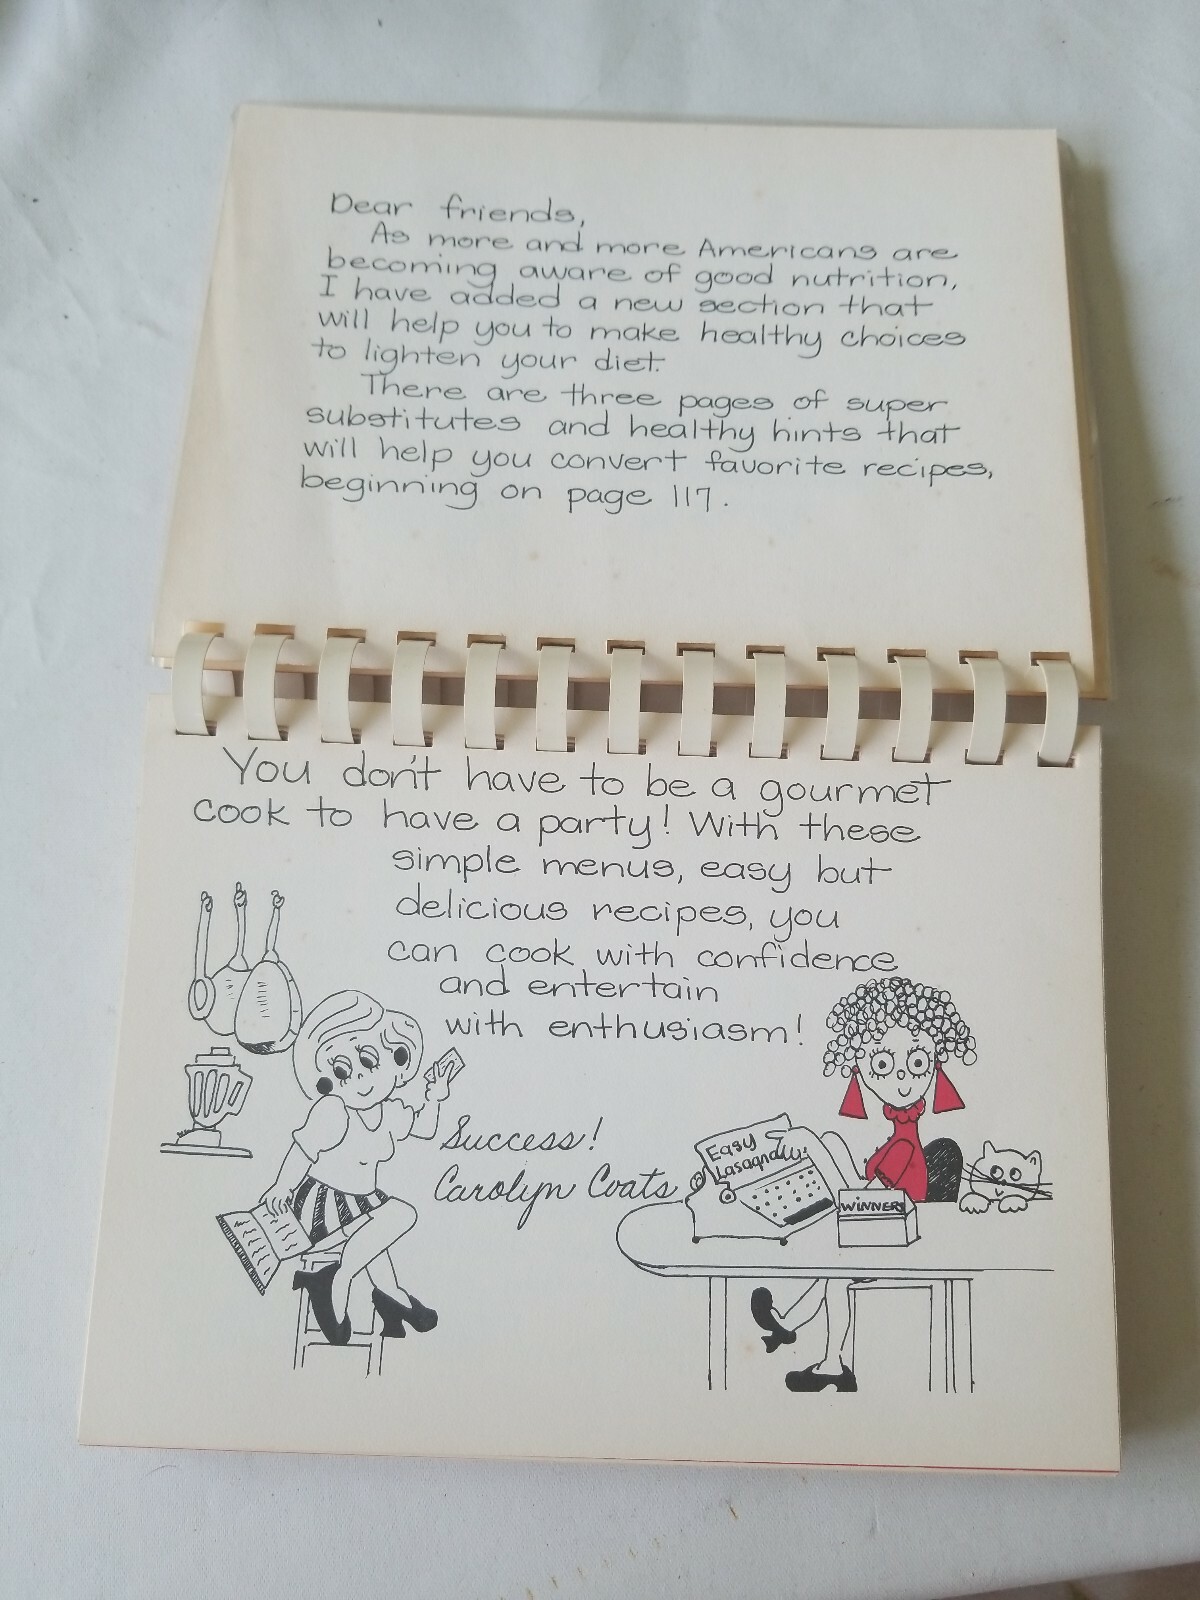 Dear friends,
As more and more Americans are
becoming aware of good nutrition,
I have added a new section that
will help you to make healthy choices
to lighten your diet.
There are three pages of super
substitutes and healthy hints that
will help you convert favorite recipes,
beginning on page 117.
You don't have to be a gourmet
cook to have a party! With these
simple menus, easy but
delicious recipes, you
can cook with confidence
and entertain
with enthusiasm!
Success!
Carolyn Coats
Easy
Lasagna
WINNERS